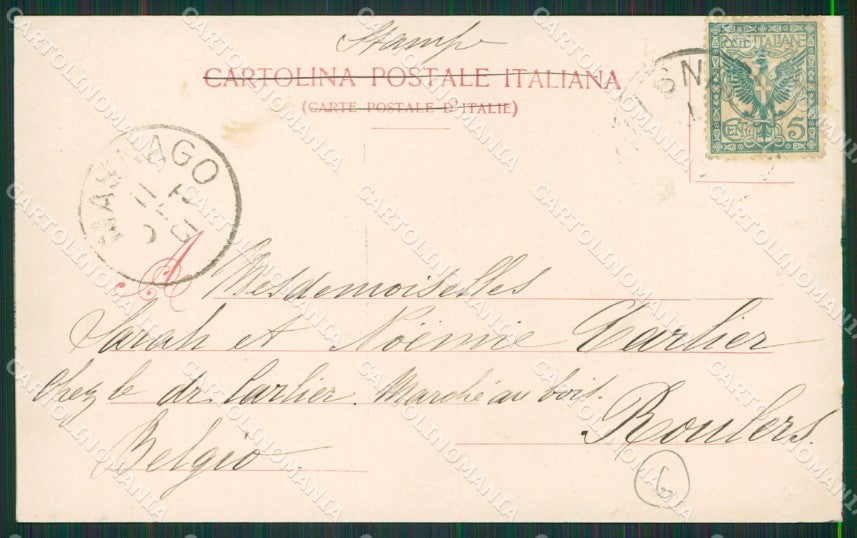 Stampe
CARTOLINA POSTALE ITALIANA
(CARTE POSTALE D'ITALIE)
POSTE ITALIANE
CENT. 5
SNA
MAGNAGO
A Mesdemoiselles
Sarah et Noémie Carlier
Chez le dr. Carlier. Marché au bois.
Roulers.
Belgio
CARTOLINOMANIA